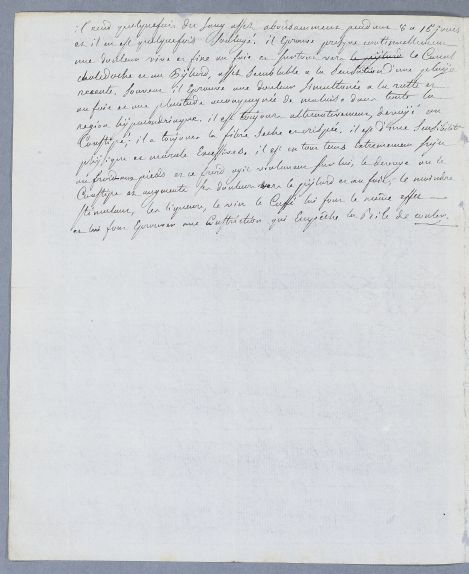 il rend quelquefois du sang assez abondamment pendant 8 a 15 jours
et il en est quelquefois soulagé. il éprouve presque continuellement
une douleur vive et fixe au foie et surtout vers le pylore le Canal
choledoche et au Pylore, assez semblable a la sensation d'une
recente, souvent il éprouve une douleur simultanée a la ratte et
au foie et une plenitude accompagnée de malaise dans toute la
region hypochondriaque. il est toujours alternativement devoyé ou
Constipé; il a toujours la fibre seche et crispée, il est d'une sensibilité
phisique et morale Excessive, il est en tout tems extremement sujet
au froid aux pieds et ce froid agit vivement sur lui, le devoye ou le
Constipe et augmente sa douleur vers le pylore et au foie, le moindre
stimulant, les liqueurs, le vin le Caffé lui font le même effet
et lui font éprouver une Constriction qui Empêche la Bile de couler.